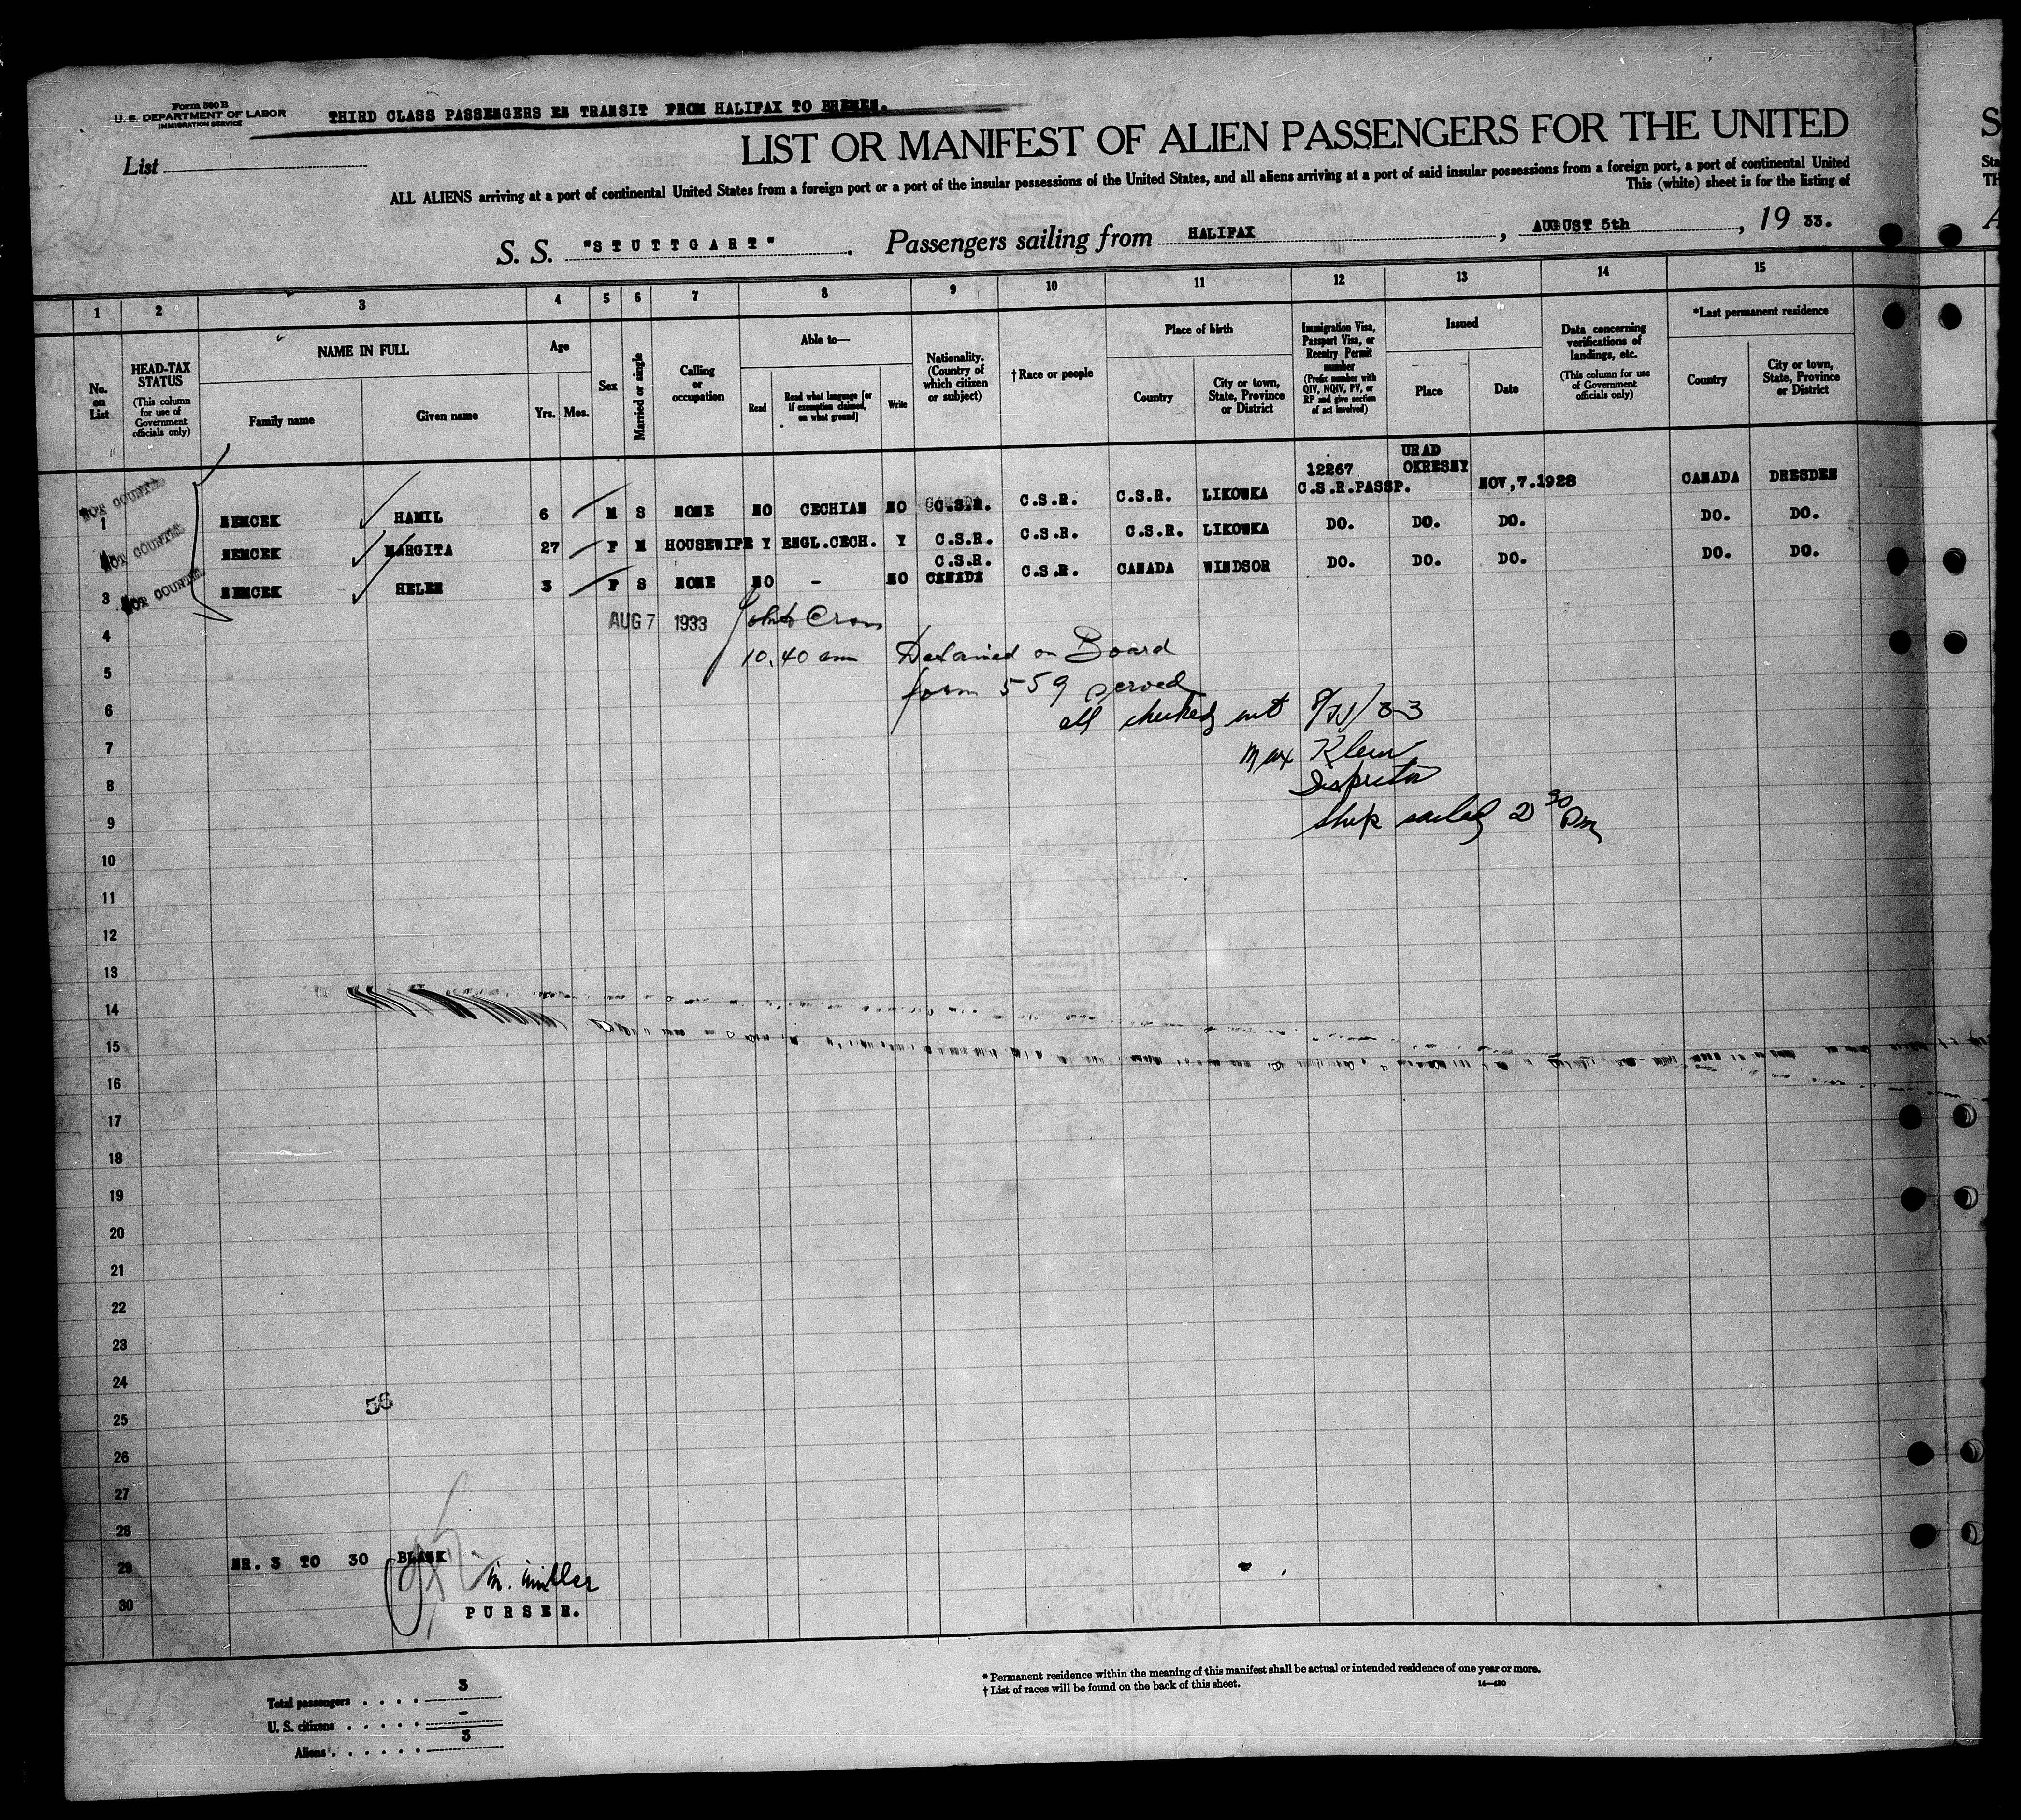 Form 500 B
U. S. DEPARTMENT OF LABOR
IMMIGRATION SERVICE
THIRD CLASS PASSENGERS EN TRANSIT FROM HALIFAX TO BREMEN.
List
LIST OR MANIFEST OF ALIEN PASSENGERS FOR THE UNITED
S
ALL ALIENS arriving at a port of continental United States from a foreign port or a port of the insular possessions of the United States, and all aliens arriving at a port of said insular possessions from a foreign port, a port of continental United
Sta
This (white) sheet is for the listing of
TH
S. S. "STUTTGART". Passengers sailing from HALIFAX, AUGUST 5th, 19 33.
A
1 2 3 4 5 6 7 8 9 10 11 12 13 14 15
No. on List
HEAD-TAX STATUS (This column for use of Government officials only)
NAME IN FULL
Family name
Given name
Age
Yrs. Mos.
Sex
Married or single
Calling or occupation
Able to—
Read
Read what language [or if exemption claimed, on what ground]
Write
Nationality. (Country of which citizen or subject)
†Race or people
Place of birth
Country
City or town, State, Province or District
Immigration Visa, Passport Visa, or Reentry Permit number (Prefix number with QIV, NQIV, PV, or RP and give section of act involved)
Issued
Place
Date
Data concerning verifications of landings, etc. (This column for use of Government officials only)
*Last permanent residence
Country
City or town, State, Province or District
URAD
12267 OKRESNY
NOT COUNTED
1 NEMCEK HAMIL 6 M S NONE NO CECHIAN NO C.S.R. C.S.R. C.S.R. LIKOWKA C.S.R.PASSP. NOV,7.1928 CANADA DRESDEN
NOT COUNTED
NEMCEK MARGITA 27 F M HOUSEWIFE Y ENGL.CECH. Y C.S.R. C.S.R. C.S.R. LIKOWKA DO. DO. DO. DO. DO.
C.S.R.
NOT COUNTED
3 NEMCEK HELEN 3 F S NONE NO - NO CANADA C.S.R. CANADA WINDSOR DO. DO. DO. DO. DO.
AUG 7 1933
4
10.40 am Detained on Board
5
form 559 served
6
all checked out 8/ /33
7
Max Klein
Inspector
8
9
ship sailed 2 30 Pm
10
11
12
13
14
15
16
17
18
19
20
21
22
23
24
56
25
26
27
28
29 NR. 3 TO 30 BLANK
30
PURSER.
Total passengers . . . . 3
U. S. citizens . . . . . -
Aliens . . . . . . 3
* Permanent residence within the meaning of this manifest shall be actual or intended residence of one year or more.
† List of races will be found on the back of this sheet.
14—430